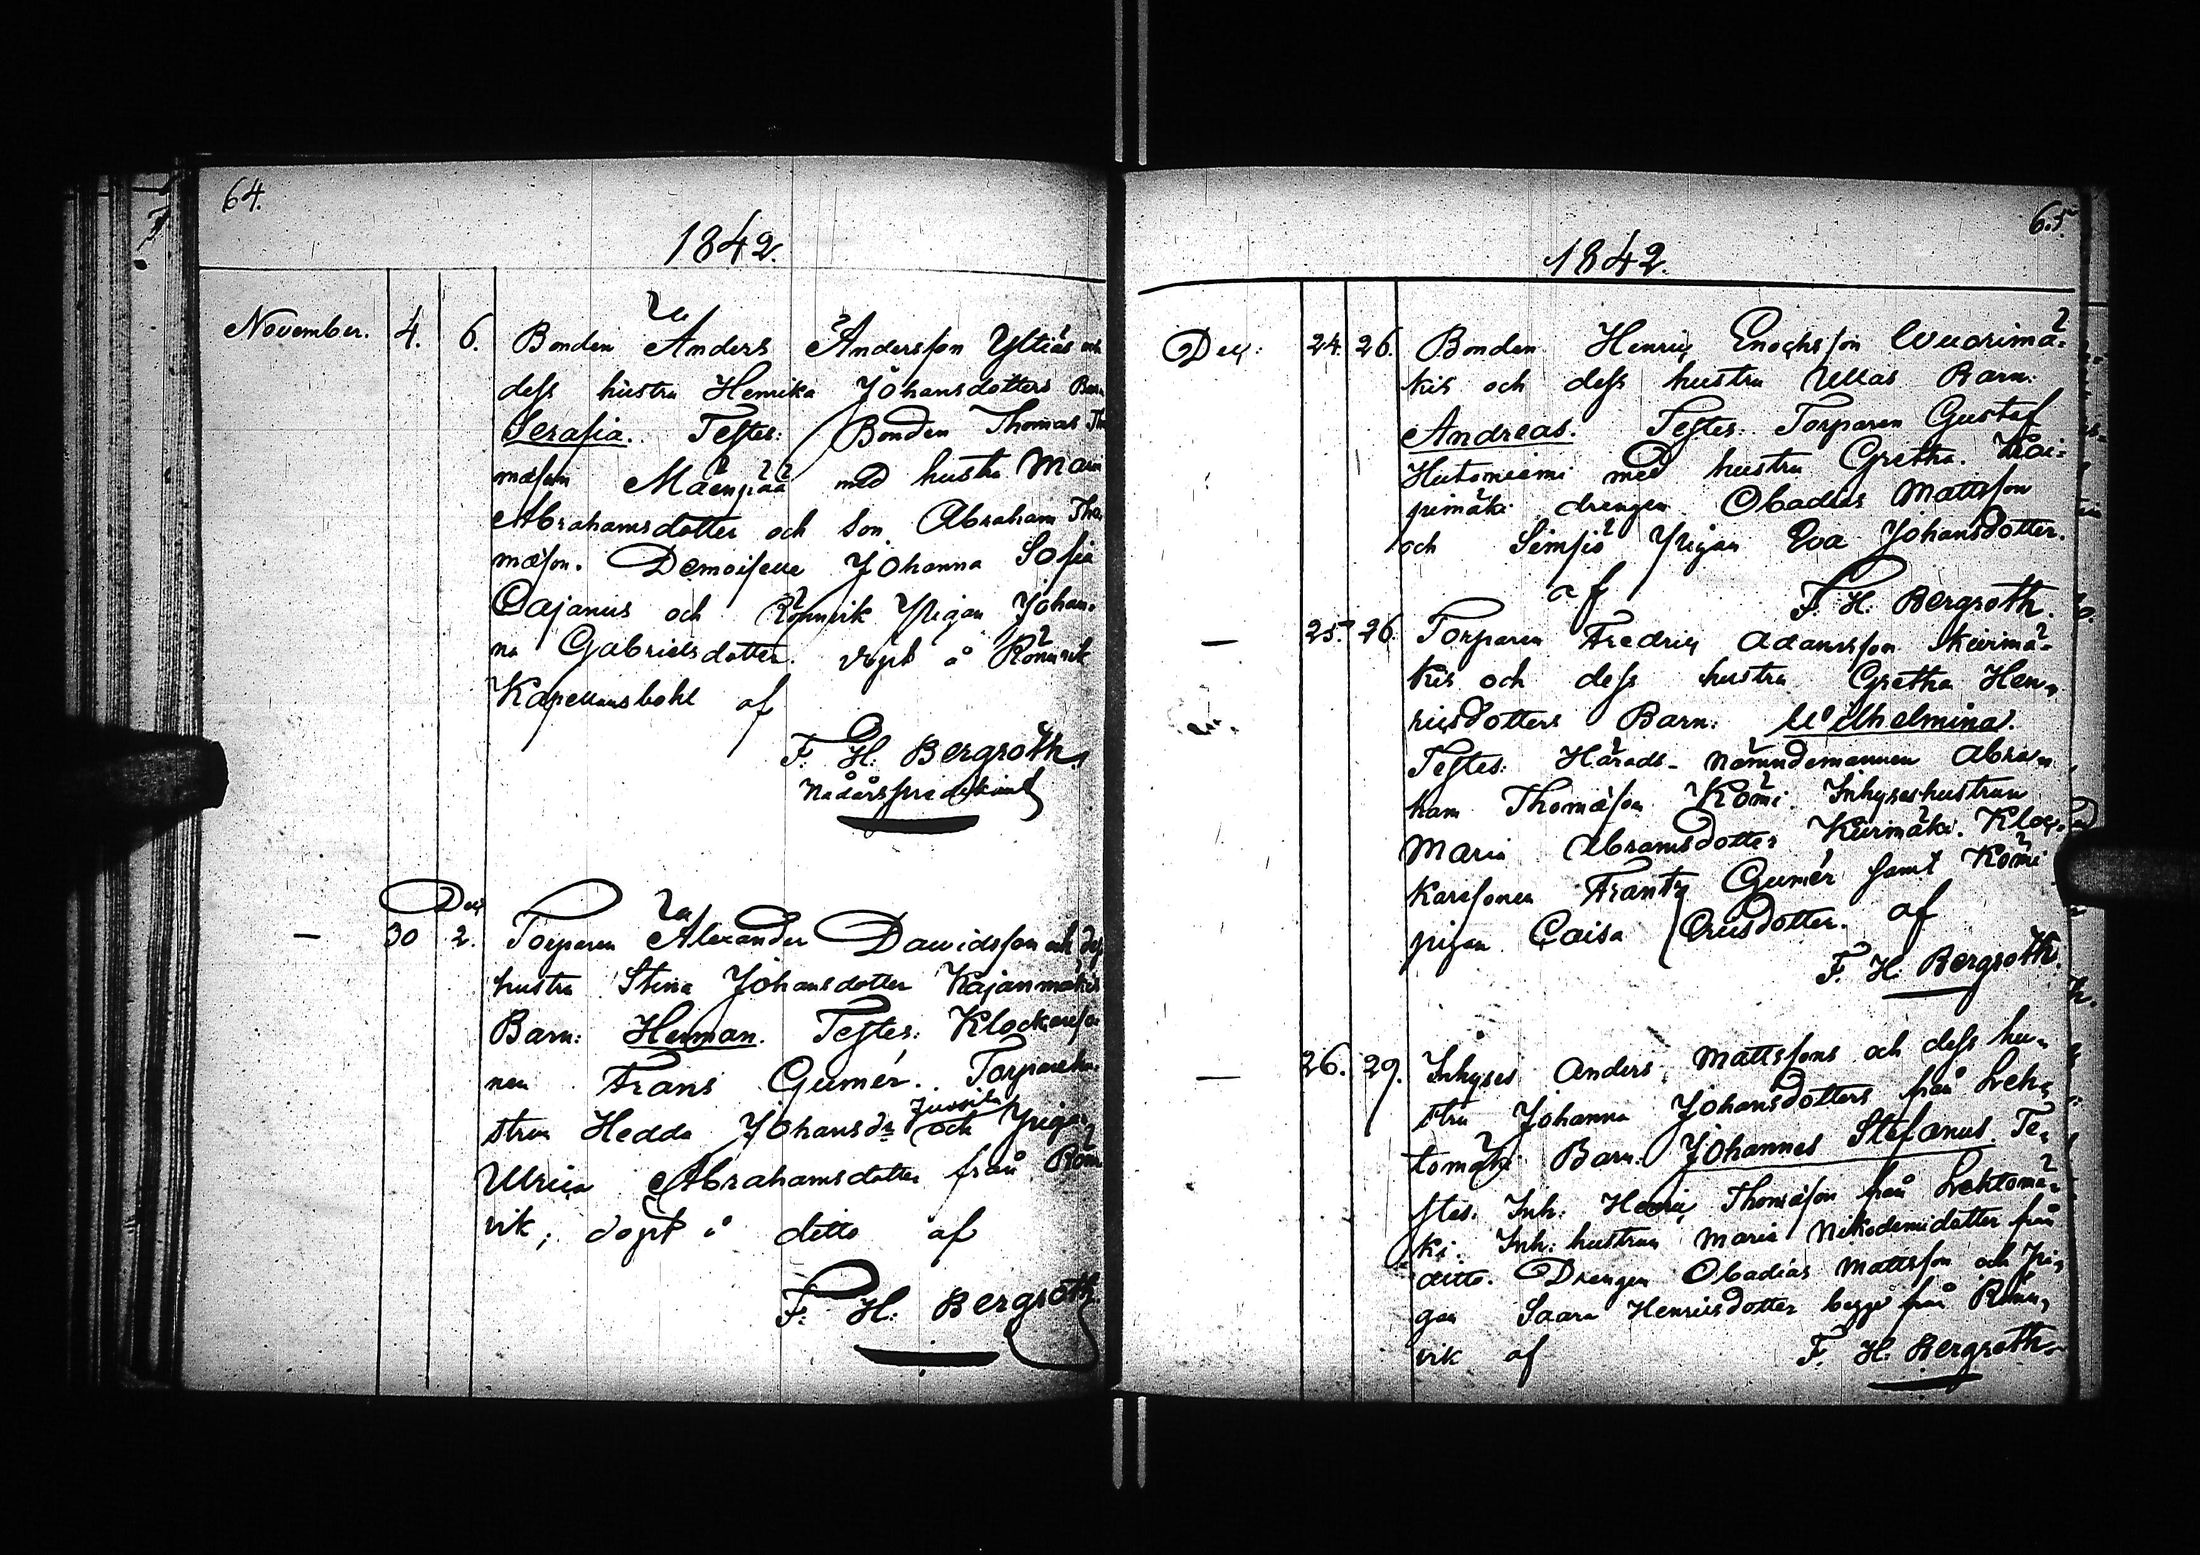 64.
1842.
November. 4. 6. Bonden Anders Andersson Yltiäs och
dess hustru Henrika Johansdotters Barn
Serafia. Testes: Bonden Thomas Tho
masson Mäenpää med hustru Maria
Abrahamsdotter och Son Abraham Tho,
masson. Demoiselle Johanna Sofia
Cajanus och Rönnvik Pigan Johan,
na Gabrielsdotter. döpt å Rönnvik
Kapellansbohl af
F. H. Bergroth.
Nådårspredikant
Dec
— 30 2. Torparen Alexander Davidsson och dess
hustru Stina Johansdotter Kajanmäkis
Barn: Herman. Testes: Klockareso
nen Frans Gumér. Torparehu
strun Hedda Johansdr och Pigan
Ulrica Abrahamsdotter från Rönn
vik; döpt i ditto af
F. H. Bergroth.
65.
1842.
Dec: 24. 26. Bonden Henric Enochsson Wuorimä-
kis och dess hustru Ullas Barn:
Andreas. Testes: Torparen Gustaf
Hietoniemi med hustru Gretha.
pimäki drengen Obadias Mattsson
och Simsiö Pigan Eva Johansdotter.
af F. H. Bergroth.
— 25. 26. Torparen Fredric Adamsson Kiirimä-
kis och dess hustru Gretha Hen,
ricsdotters Barn: Wilhelmina.
Testes: Härads-nämndemannen Abra,
ham Thomasson Kömi. Inhyseshustrun
Maria Abramsdotter Kiirimäki. Kloc,
karesonen Frantz Gumér samt Kömi
pigan Caisa Ericsdotter. af
F. H. Bergroth.
— 26. 29. Inhyses Anders Mattssons och dess hu,
stru Johanna Johansdotters från Leh,
tomäki Barn: Johannes Stefanus. Te,
stes. Inh: Henric Thomasson från Lehtomä-
ki. Inh: hustrun Maria Nikodemidotter från
ditto. Drengen Obadias Mattsson och Pi,
gan Saara Henricsdotter begge från Rönn,
vik af F. H. Bergroth.